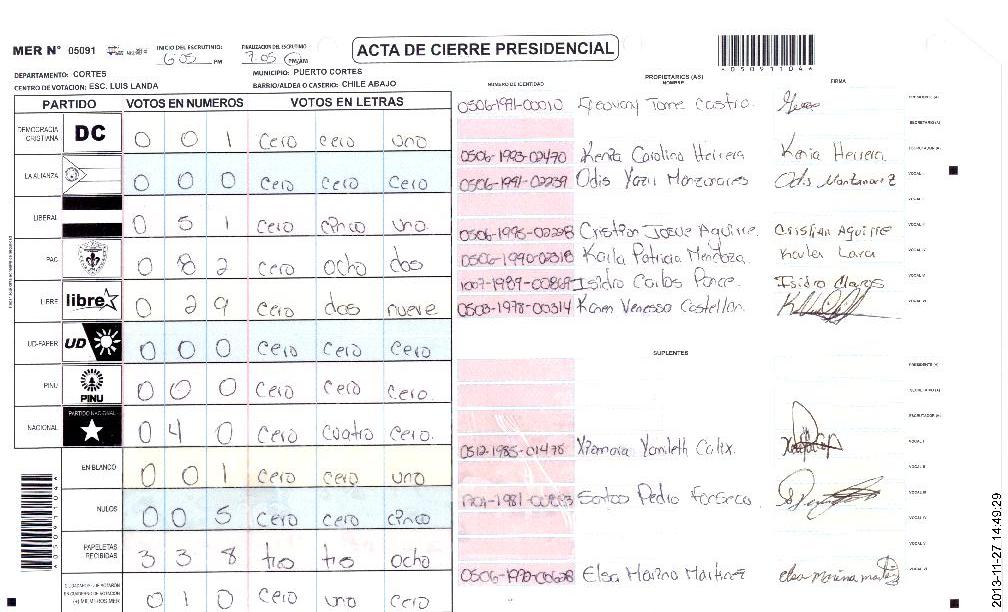 MER N° 05091
INICIO DEL ESCRUTINIO: 6:05 PM
FINALIZACION DEL ESCRUTINIO 7:05 PM/AM
ACTA DE CIERRE PRESIDENCIAL
DEPARTAMENTO: CORTES
MUNICIPIO: PUERTO CORTES
CENTRO DE VOTACION: ESC. LUIS LANDA
BARRIO/ALDEA O CASERIO: CHILE ABAJO
PARTIDO VOTOS EN NUMEROS VOTOS EN LETRAS
DEMOCRACIA CRISTIANA DC 0 0 1 Cero cero uno
LA ALIANZA 0 0 0 Cero Cero Cero
LIBERAL 0 5 1 Cero cinco uno
PAC 0 8 2 cero ocho dos
LIBRE libre 0 2 9 Cero dos nueve
UD-FAPER UD 0 0 0 Cero Cero Cero
PINU PINU 0 0 0 cero cero cero
NACIONAL PARTIDO NACIONAL 0 4 0 Cero cuatro Cero.
EN BLANCO 0 0 1 Cero Cero uno
NULOS 0 0 5 Cero cero cinco
PAPELETAS RECIBIDAS 3 3 8 tres tres ocho
0 1 0 Cero uno cero
NUMERO DE IDENTIDAD
PROPIETARIOS (AS)
NOMBRE
FIRMA
0506-1991-00010 Geovany Torre Castro.
0506-1993-02470 Kenia Carolina Herrera Kenia Herrera.
0506-1991-02239 Odis Yazir Manzanares
0506-1995-02228 Cristian Josue Aguirre. Cristian Aguirre
0506-1990-02318 Karla Patricia Mendoza. Karla
1007-1987-00869 Isidro Carlos Ponce. Isidro
0503-1978-00314 Karen Venessa Castellon.
SUPLENTES
0512-1985-01475 Xiomara Yamileth Calix.
Santos Pedro Fonseca
0506-1970-00628 Elsa Marina Martinez elsa marina
2013-11-27 14:49:29